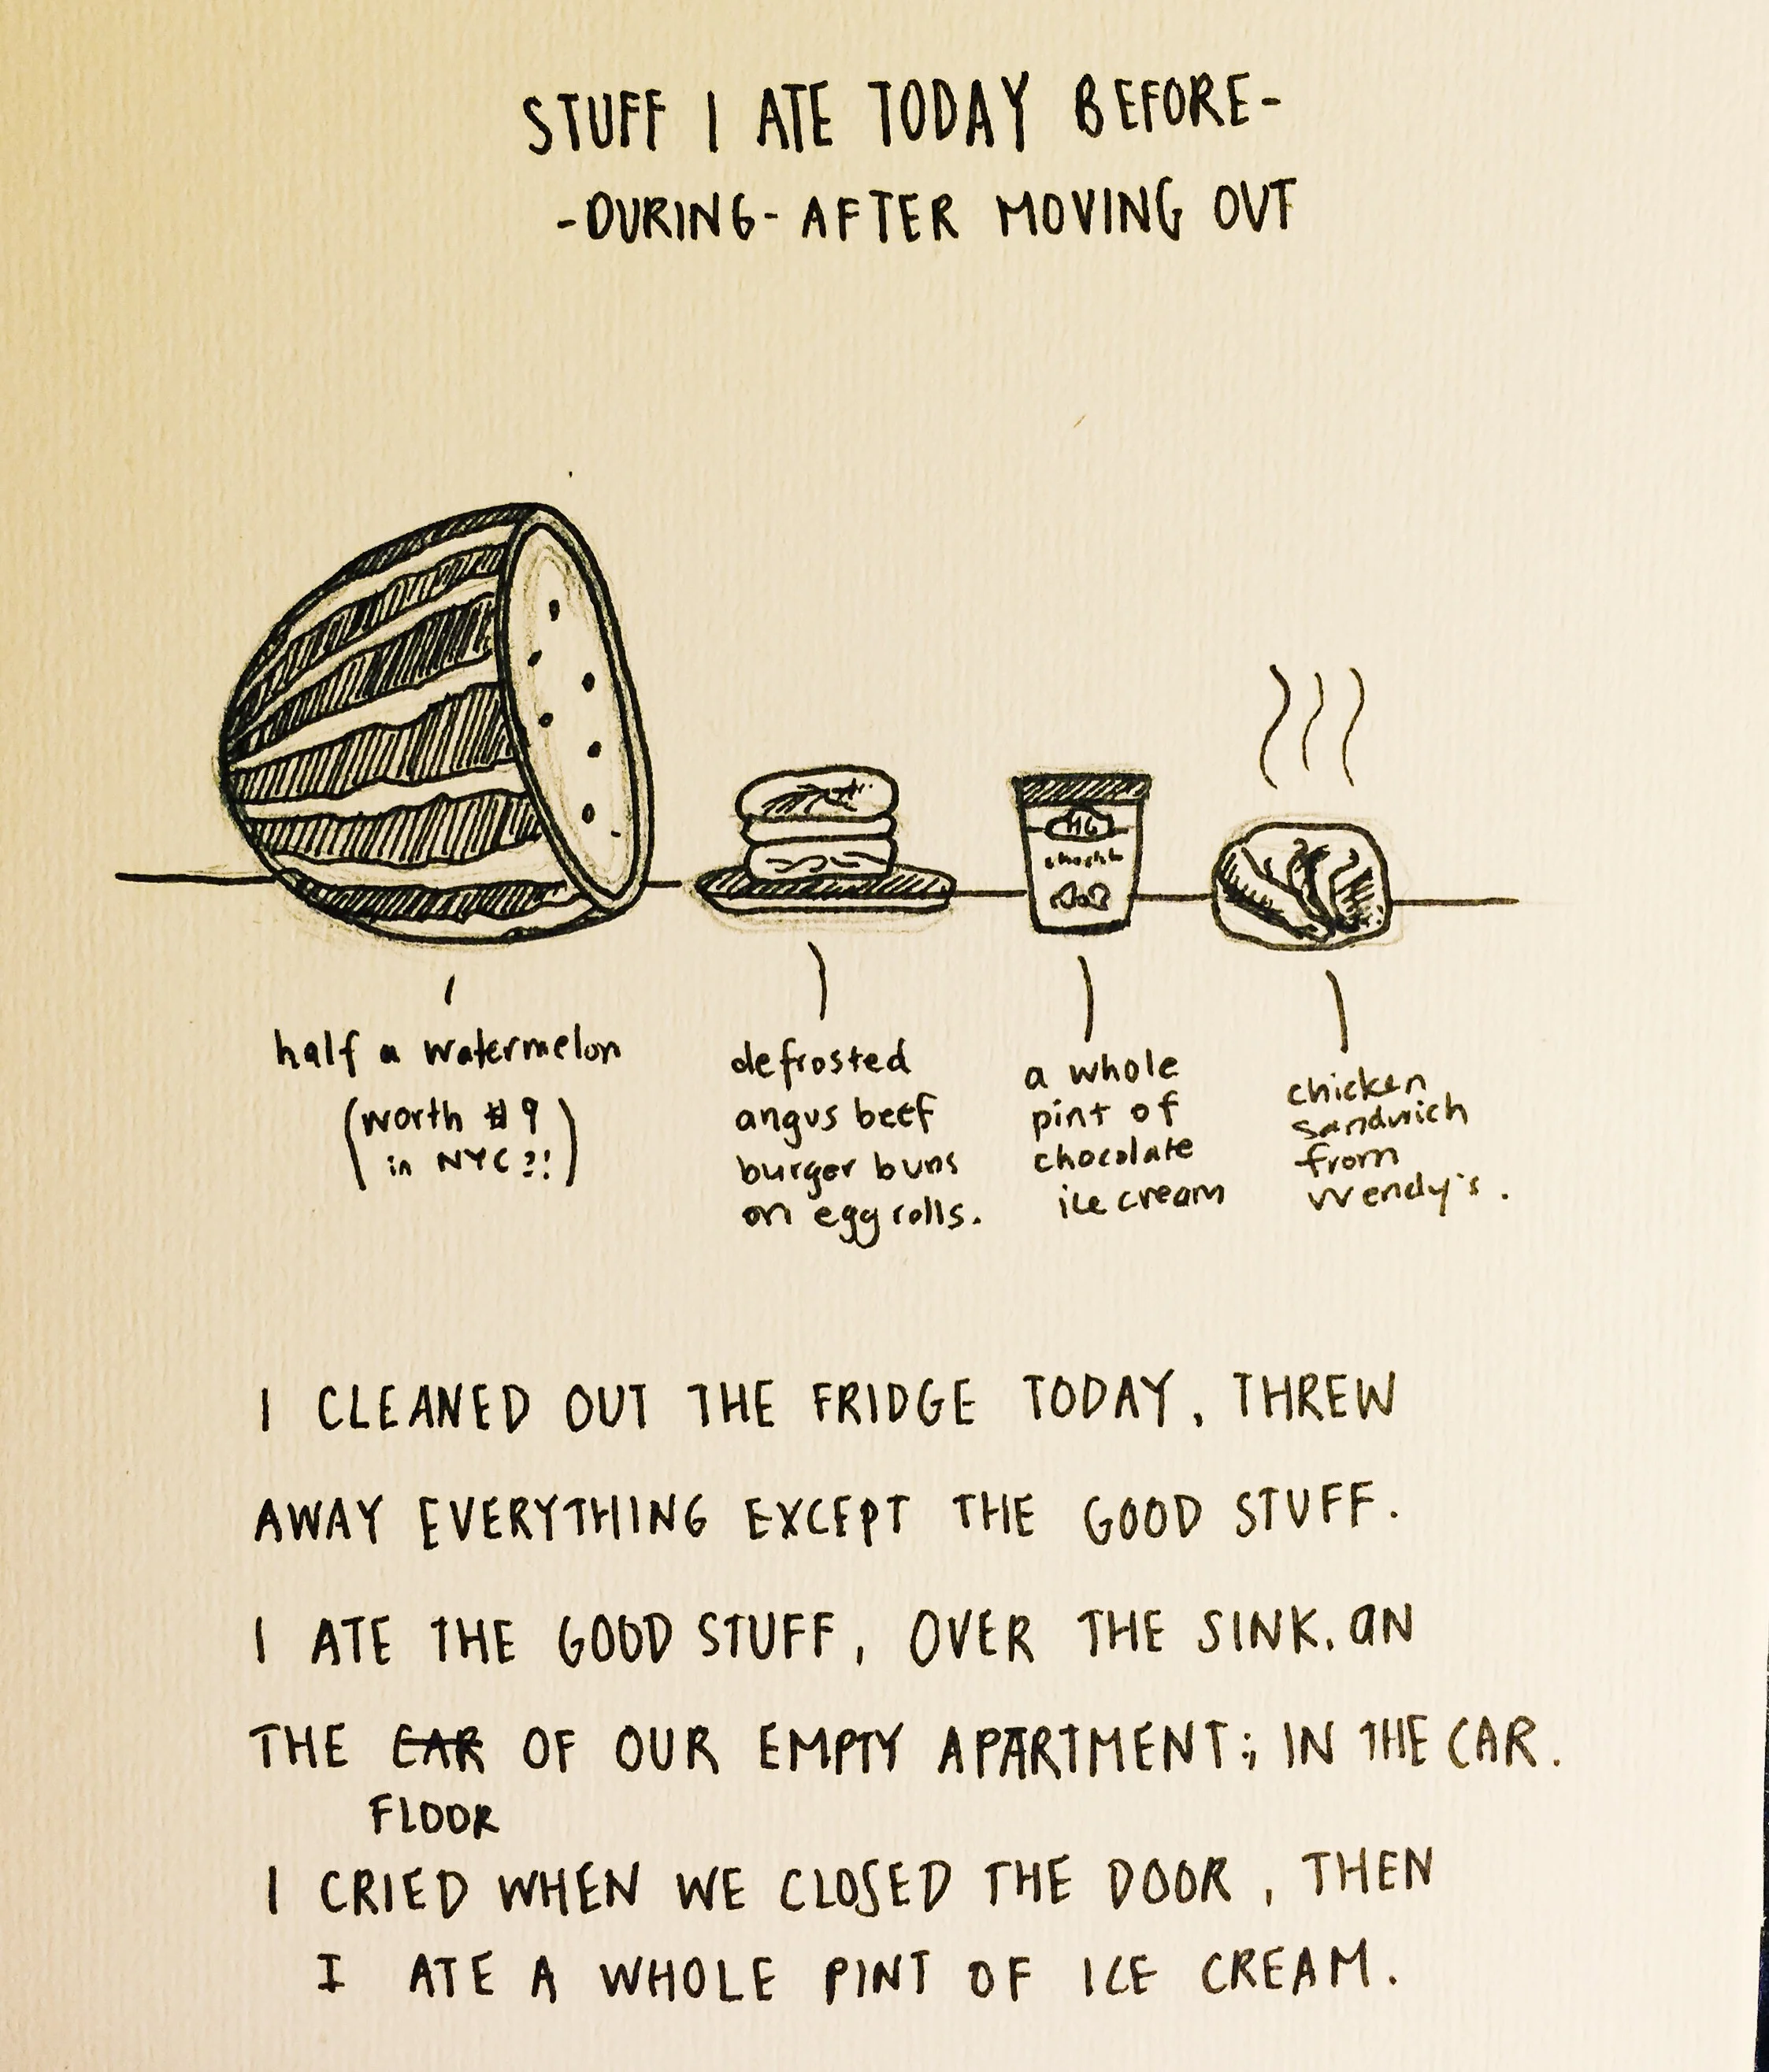 STUFF I ATE TODAY BEFORE-
-DURING- AFTER MOVING OUT
HG
half a watermelon
(worth $9
in NYC?!)
defrosted
angus beef
burger buns
on egg rolls.
a whole
pint of
chocolate
ice cream
chicken
sandwich
from
Wendy's.
I CLEANED OUT THE FRIDGE TODAY, THREW
AWAY EVERYTHING EXCEPT THE GOOD STUFF.
I ATE THE GOOD STUFF, OVER THE SINK, ON
THE CAR OF OUR EMPTY APARTMENT; IN THE CAR.
FLOOR
I CRIED WHEN WE CLOSED THE DOOR, THEN
I ATE A WHOLE PINT OF ICE CREAM.